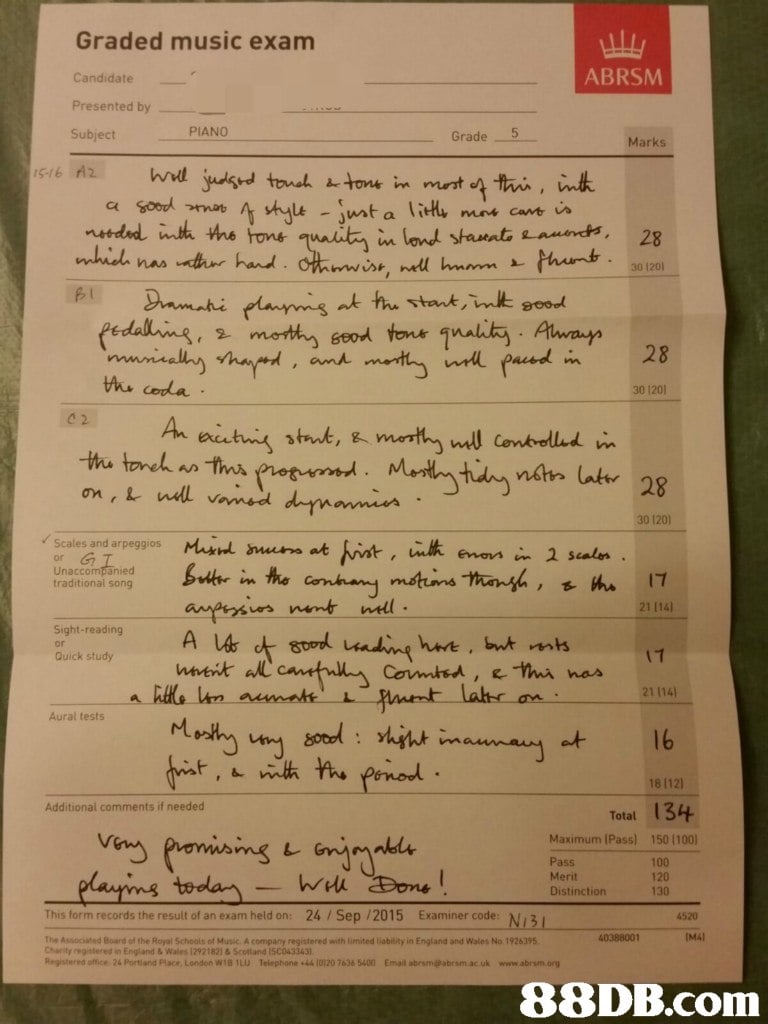 Graded music exam
ABRSM
Candidate
Presented by
Subject PIANO Grade 5
Marks
15-16 A2 Well judged touch & tone in most of this, with
a good sense of style - just a little more care is
needed with the tone quality in loud staccato & accents,
which was rather hard. Otherwise, well known & fluent.
28
30 (20)
B1 Dramatic playing at the start, with good
pedalling, & mostly good tone quality. Always
musically shaped, and mostly well paced in
the coda.
28
30 (20)
C2 An exciting start, & mostly well controlled in
the touch as this progressed. Mostly tidy notes later
on, & well varied dynamics.
28
30 (20)
✓ Scales and arpeggios
or G I
Unaccompanied
traditional song
Mixed success at first, with errors in 2 scales.
Better in the contrary motions though, & the
arpeggios went well.
17
21 (14)
Sight-reading
or
Quick study
A lot of good reading here, but rests
weren't all carefully counted, & this was
a little less accurate & fluent later on.
17
21 (14)
Aural tests
Mostly very good: slight inaccuracy at
first, & with the period.
16
18 (12)
Additional comments if needed
Very promising & enjoyable
playing today — Well Done!
Total 134
Maximum (Pass) 150 (100)
Pass 100
Merit 120
Distinction 130
This form records the result of an exam held on: 24 / Sep /2015 Examiner code: N131 4520
The Associated Board of the Royal Schools of Music. A company registered with limited liability in England and Wales No. 1926395. 40388001 (M4)
Charity registered in England & Wales (292182) & Scotland (SC043343).
Registered office: 24 Portland Place, London W1B 1LU Telephone +44 (0)20 7636 5400 Email abrsm@abrsm.ac.uk www.abrsm.org
88DB.com